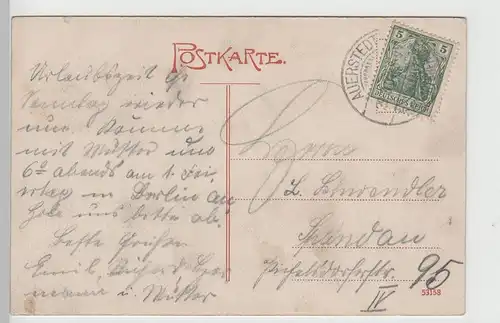 POSTKARTE.
AUERSTEDT
5 5
DEUTSCHES REICH
Urlaubszeit ist
Sonntag wieder
um. Kommen
mit Mutter um
6° abends am 1. Fei-
ertag in Berlin an
Hole uns bitte ab.
Beste Grüße
Emil, Richard, Her-
mann u. Mutter
Herrn
Spandau
Pichelsdorferstr. 95
IV
53158